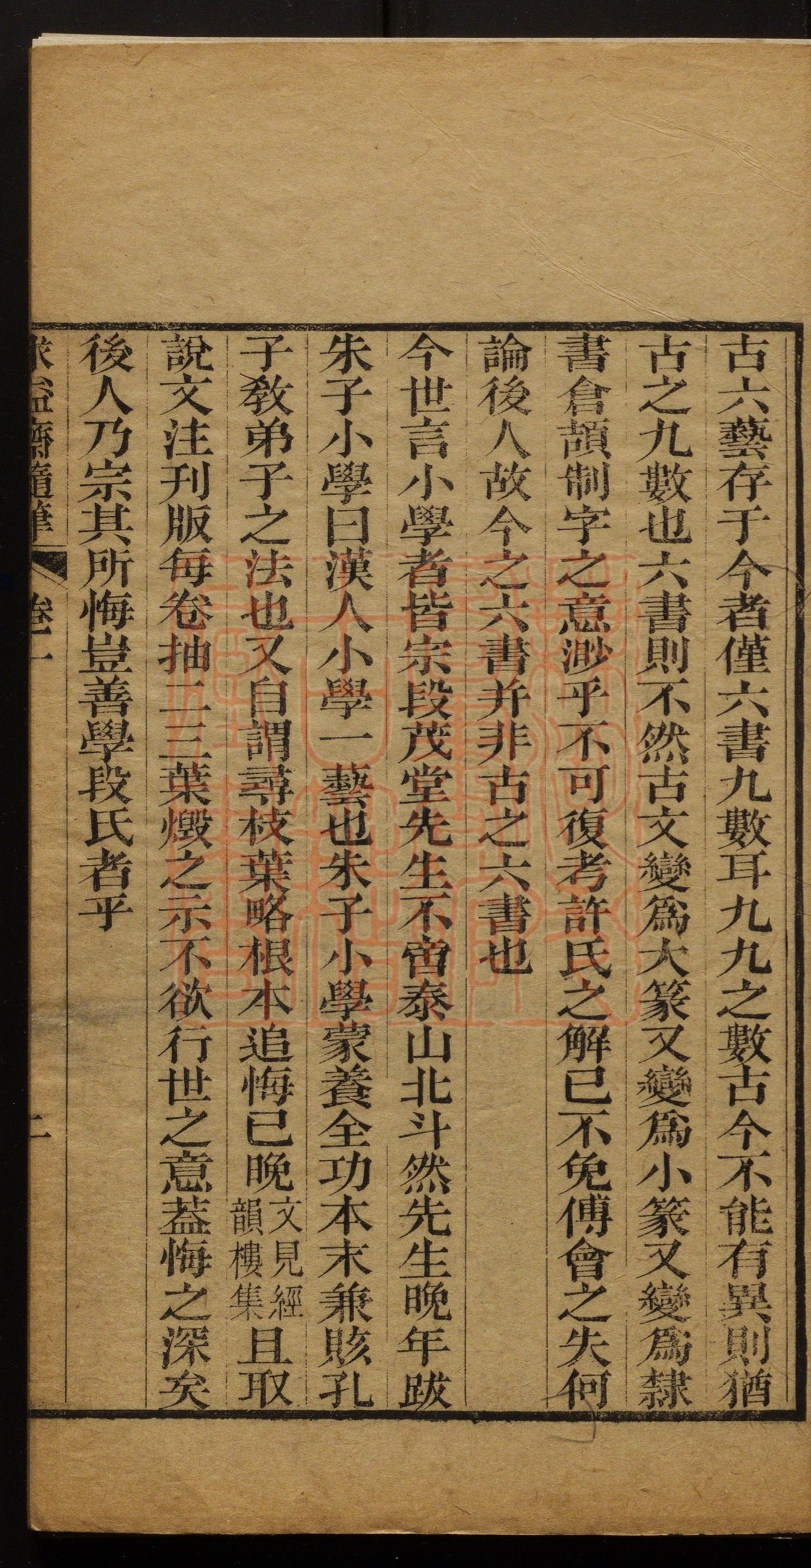 古六藝存于今者僅六書九數耳九九之數古今不能有異則猶
古之九數也六書則不然古文變爲大篆又變爲小篆又變爲隸
書倉頡制字之意渺乎不可復考許氏之解已不免傅會之失何
論後人故今之六書并非古之六書也
今世言小學者皆宗段茂堂先生不啻泰山北斗然先生晚年跋
朱子小學曰漢人小學一藝也朱子小學蒙養全功本末兼賅孔
子教弟子之法也又自謂尋枝葉略根本追悔已晚文見經韻樓集且取
說文注刊版每卷抽二三葉燬之示不欲行世之意蓋悔之深矣
後人乃宗其所悔豈善學段氏者乎
求益齋隨筆 卷一 二